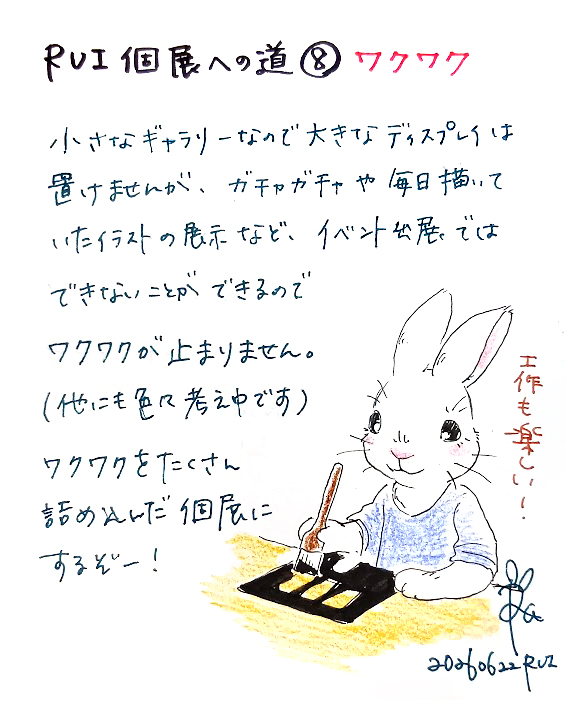 RUI 個展への道⑧ ワクワク
小さなギャラリーなので大きなディスプレイは
置けませんが、ガチャガチャや毎日描いて
いたイラストの展示など、イベント出展では
できないことができるので
ワクワクが止まりません。
(他にも色々考え中です)
ワクワクをたくさん
詰め込んだ個展に
するぞー!
工作も楽しい!
20260622 RUI